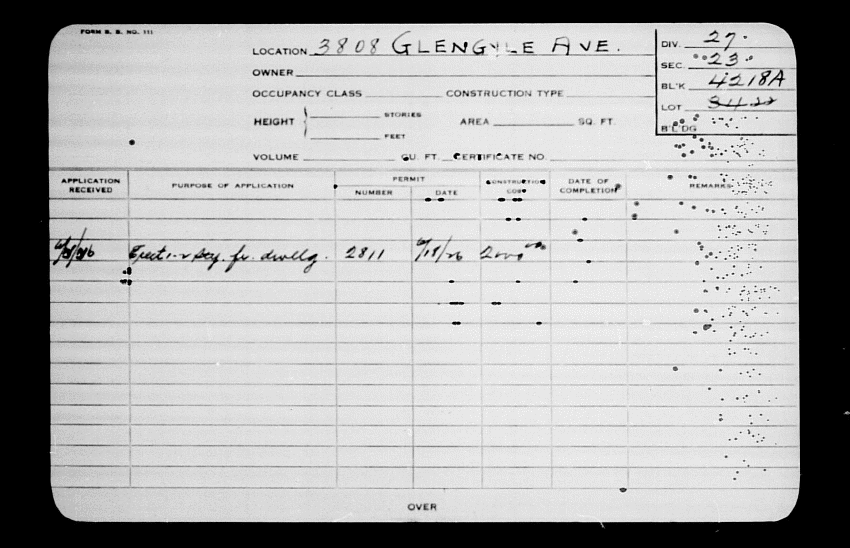 FORM B. B. NO. 111
LOCATION 3808 GLENGYLE AVE.
DIV. 27.
SEC. 23.
OWNER
BL'K 4218A
OCCUPANCY CLASS CONSTRUCTION TYPE
LOT
HEIGHT STORIES AREA SQ. FT.
FEET
B'L'DG
VOLUME CU. FT. CERTIFICATE NO.
APPLICATION RECEIVED PURPOSE OF APPLICATION PERMIT NUMBER DATE CONSTRUCTION COST DATE OF COMPLETION REMARKS
Erect 1-2 sty. fr. dwellg. 2811 6/18/26 2000
OVER